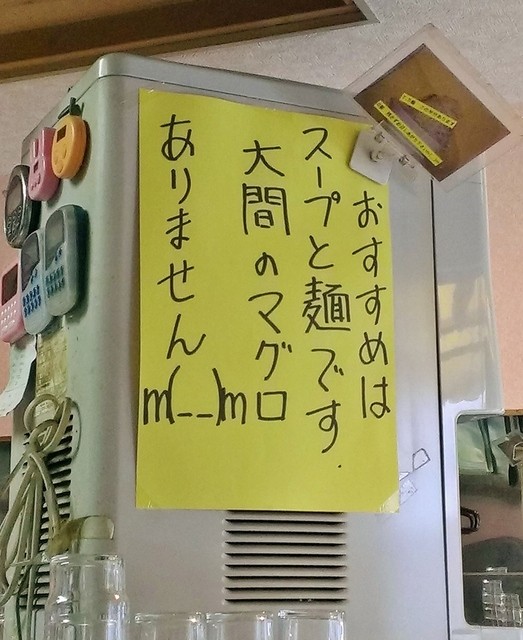 おすすめは
スープと麺です.
大間のマグロ
ありません
m(__)m